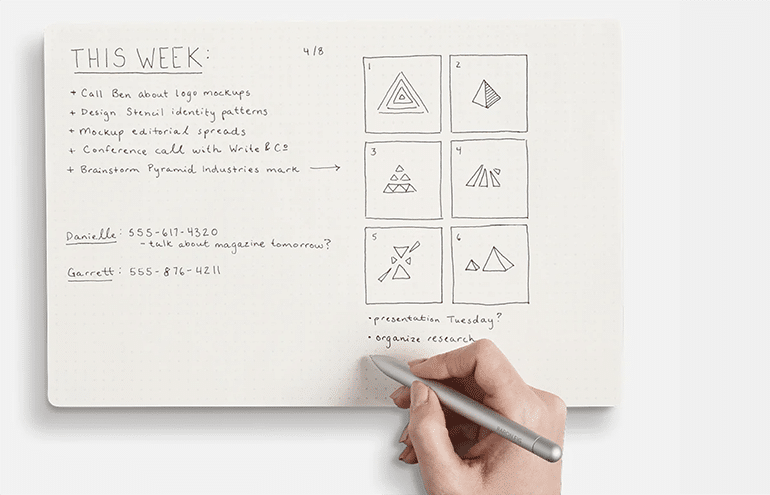 THIS WEEK:
4/8
+ Call Ben about logo mockups
+ Design Stencil identity patterns
+ Mockup editorial spreads
+ Conference call with Write & Co
+ Brainstorm Pyramid Industries mark →
Danielle: 555-617-4320
- talk about magazine tomorrow?
Garrett: 555-876-4211
1
2
3
4
5
6
• presentation Tuesday?
• organize research